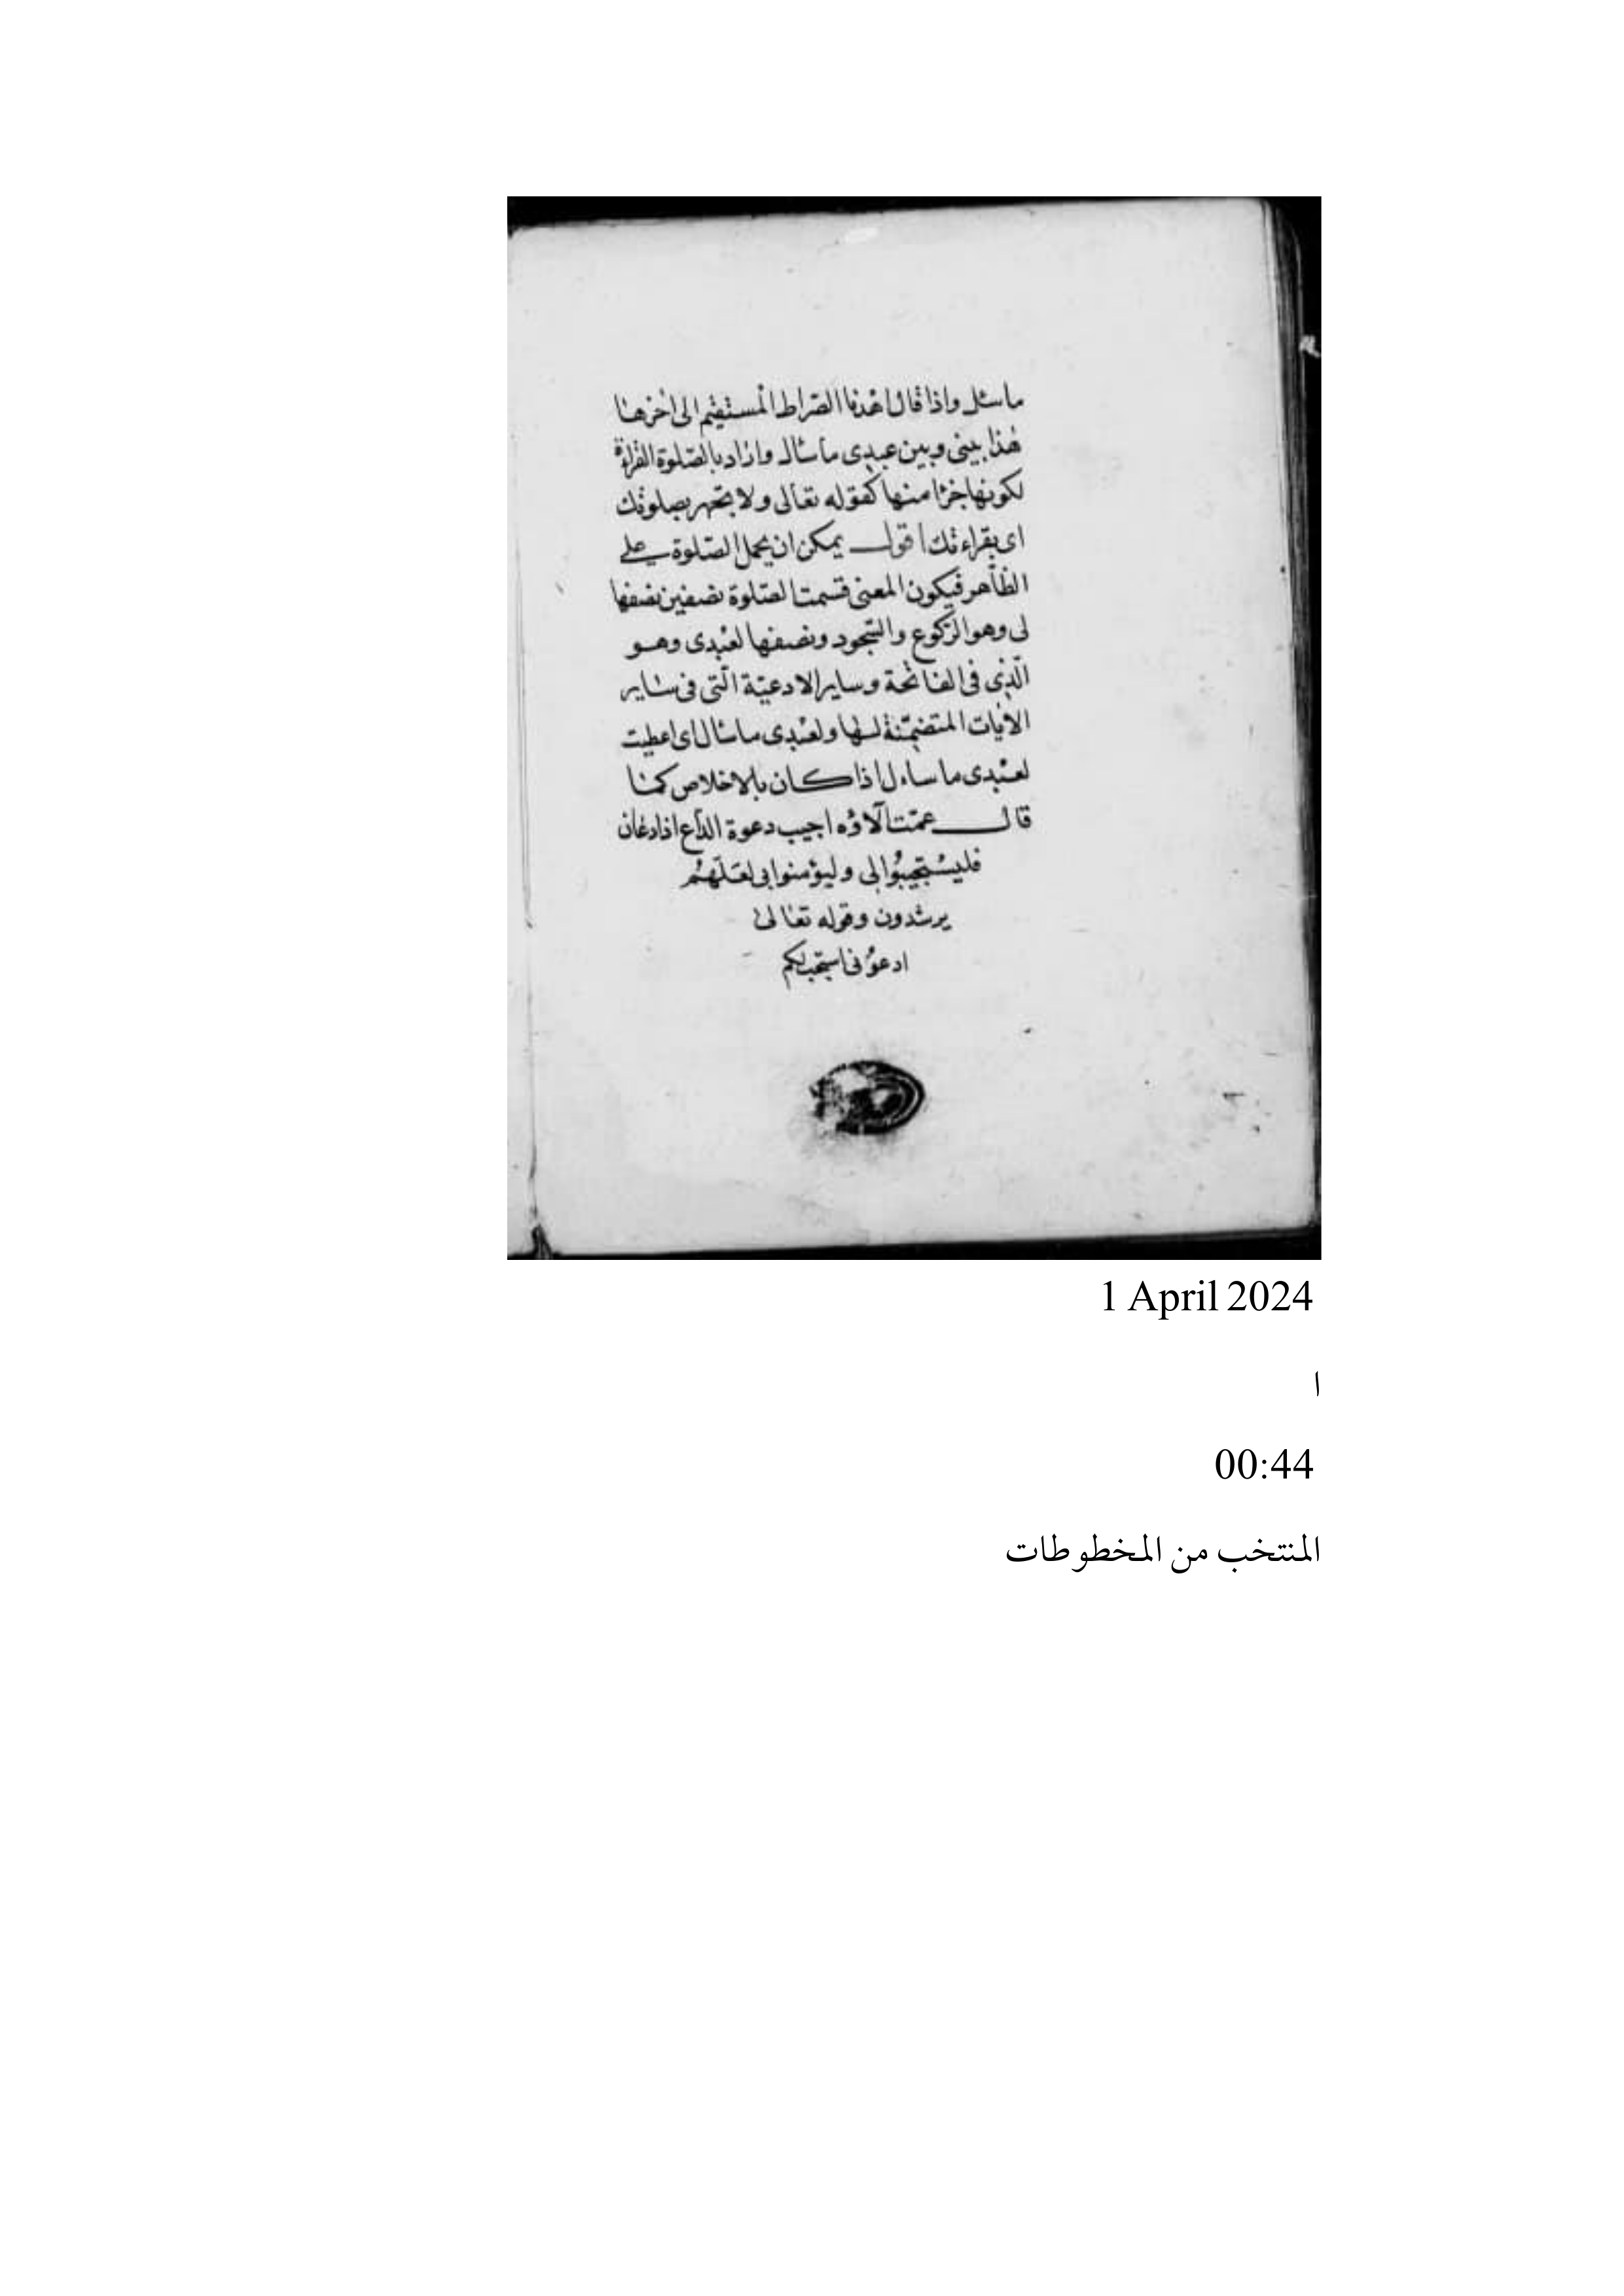 ماسئل واذا قال اهدنا الصّراط المستقيم الى اخرها
هذا بينى وبين عبدى ما سئال واراد بالصّلوة القراءة
لكونها جزءا منها كقوله تعالى ولا تجهر بصلوتك
اى بقراءتك اقول يمكن ان يحمل الصّلوة على
الظّاهر فيكون المعنى قسمت الصّلوة نصفين نصفها
لى وهو الرّكوع والسّجود ونصفها لعبدى وهو
الّذى فى الفاتحة وساير الادعيّة الّتى فى ساير
الايات المتضمّنة لها ولعبدى ما سئال اى اعطيت
لعبدى ما ساءل اذا كان بالاخلاص كما
قال عمّت آلاؤه اجيب دعوة الدّاع اذا دعان
فليستجيبوا لى وليؤمنوا بى لعلّهم
يرشدون وقوله تعالى
ادعونى استجب لكم
1 April 2024
ا
00:44
المنتخب من المخطوطات